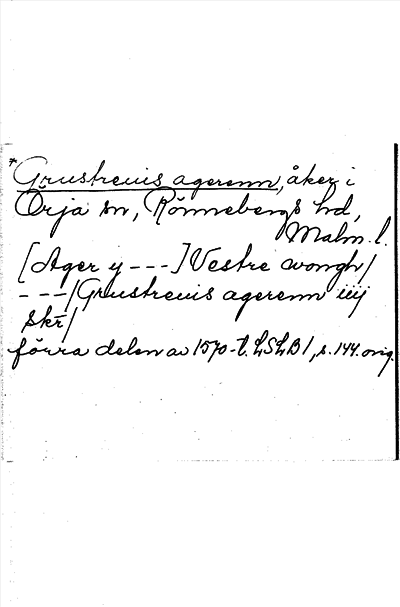 *Grustreuis agerenn, åker i
Örja sn, Rönnebergs hd,
Malm. l.
[Ager y ---] Vestre wongh/
---/Grustreuis agerenn iiij
skr/
förra delen av 1570-t. LSLB 1, s. 144. orig.